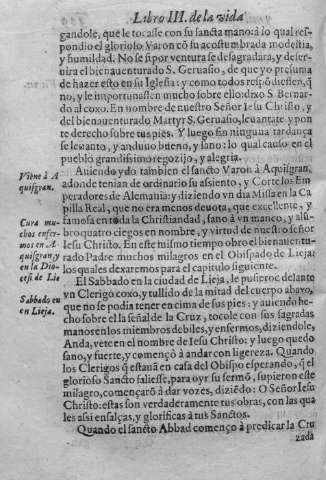 Libro III. de la vida
gandole, que le tocasse con su sancta mano: à lo qual res-
pondio el glorioso Varon cõ su acostumbrada modestia,
y humildad. No se si por ventura se desagradara, y deser-
uira el bienauenturado S. Geruasio, de que yo presuma
de hazer esto en su Iglesia: y como todos respõdiessen, q̃
no, y le importunassen mucho sobre ello: dixo S. Bernar-
do al coxo. En nombre de nuestro Señor Iesu Christo, y
del bienauenturado Martyr S. Geruasio, leuantate y pon
te derecho sobre tus pies. Y luego sin ninguna tardança
se leuanto, y anduuo bueno, y sano: lo qual causo en el
pueblo grandissimo regozijo, y alegria.
Viene à A
quisgran.
Auiendo ydo tambien el sancto Varon à Aquisgran,
adonde tenian de ordinario su assiento, y Corte los Em-
peradores de Alemania: y diziendo vn dia Missa en la Ca
pilla Real, que no era menos deuota, que excelente, y
famosa en toda la Christiandad, sano à vn manco, y alũ-
Cura mu-
chos enfer
mos en A
quisgran, y
en la Dio-
cesi de Lie
bro quatro ciegos en nombre, y virtud de nuestro señor
Iesu Christo. En este mismo tiempo obro el bienauentu-
rado Padre muchos milagros en el Obispado de Lieja:
los quales dexaremos para el capitulo siguiente.
Sabbado en
en Lieja.
El Sabbado en la ciudad de Lieja, le pusieron delante
vn Clerigo coxo, y tullido de la mitad del cuerpo abaxo,
que no se podia tener en cima de sus pies: y auiendo he-
cho sobre el la señal de la Cruz, tocole con sus sagradas
manos en los miembros debiles, y enfermos, diziendole,
Anda, vete en el nombre de Iesu Christo: y luego quedo
sano, y fuerte, y començò à andar con ligereza. Quando
los Clerigos q̃ estauã en casa del Obispo esperando, q̃ el
glorioso Sancto saliesse, para oyr su sermõ, supieron este
milagro, començarõ à dar vozes, diziẽdo: O Señor Iesu
Christo: estas son verdaderamente tus obras, con las qua
les assi ensalças, y glorificas à tus Sanctos.
Quando el sancto Abbad començo à predicar la Cru
zada